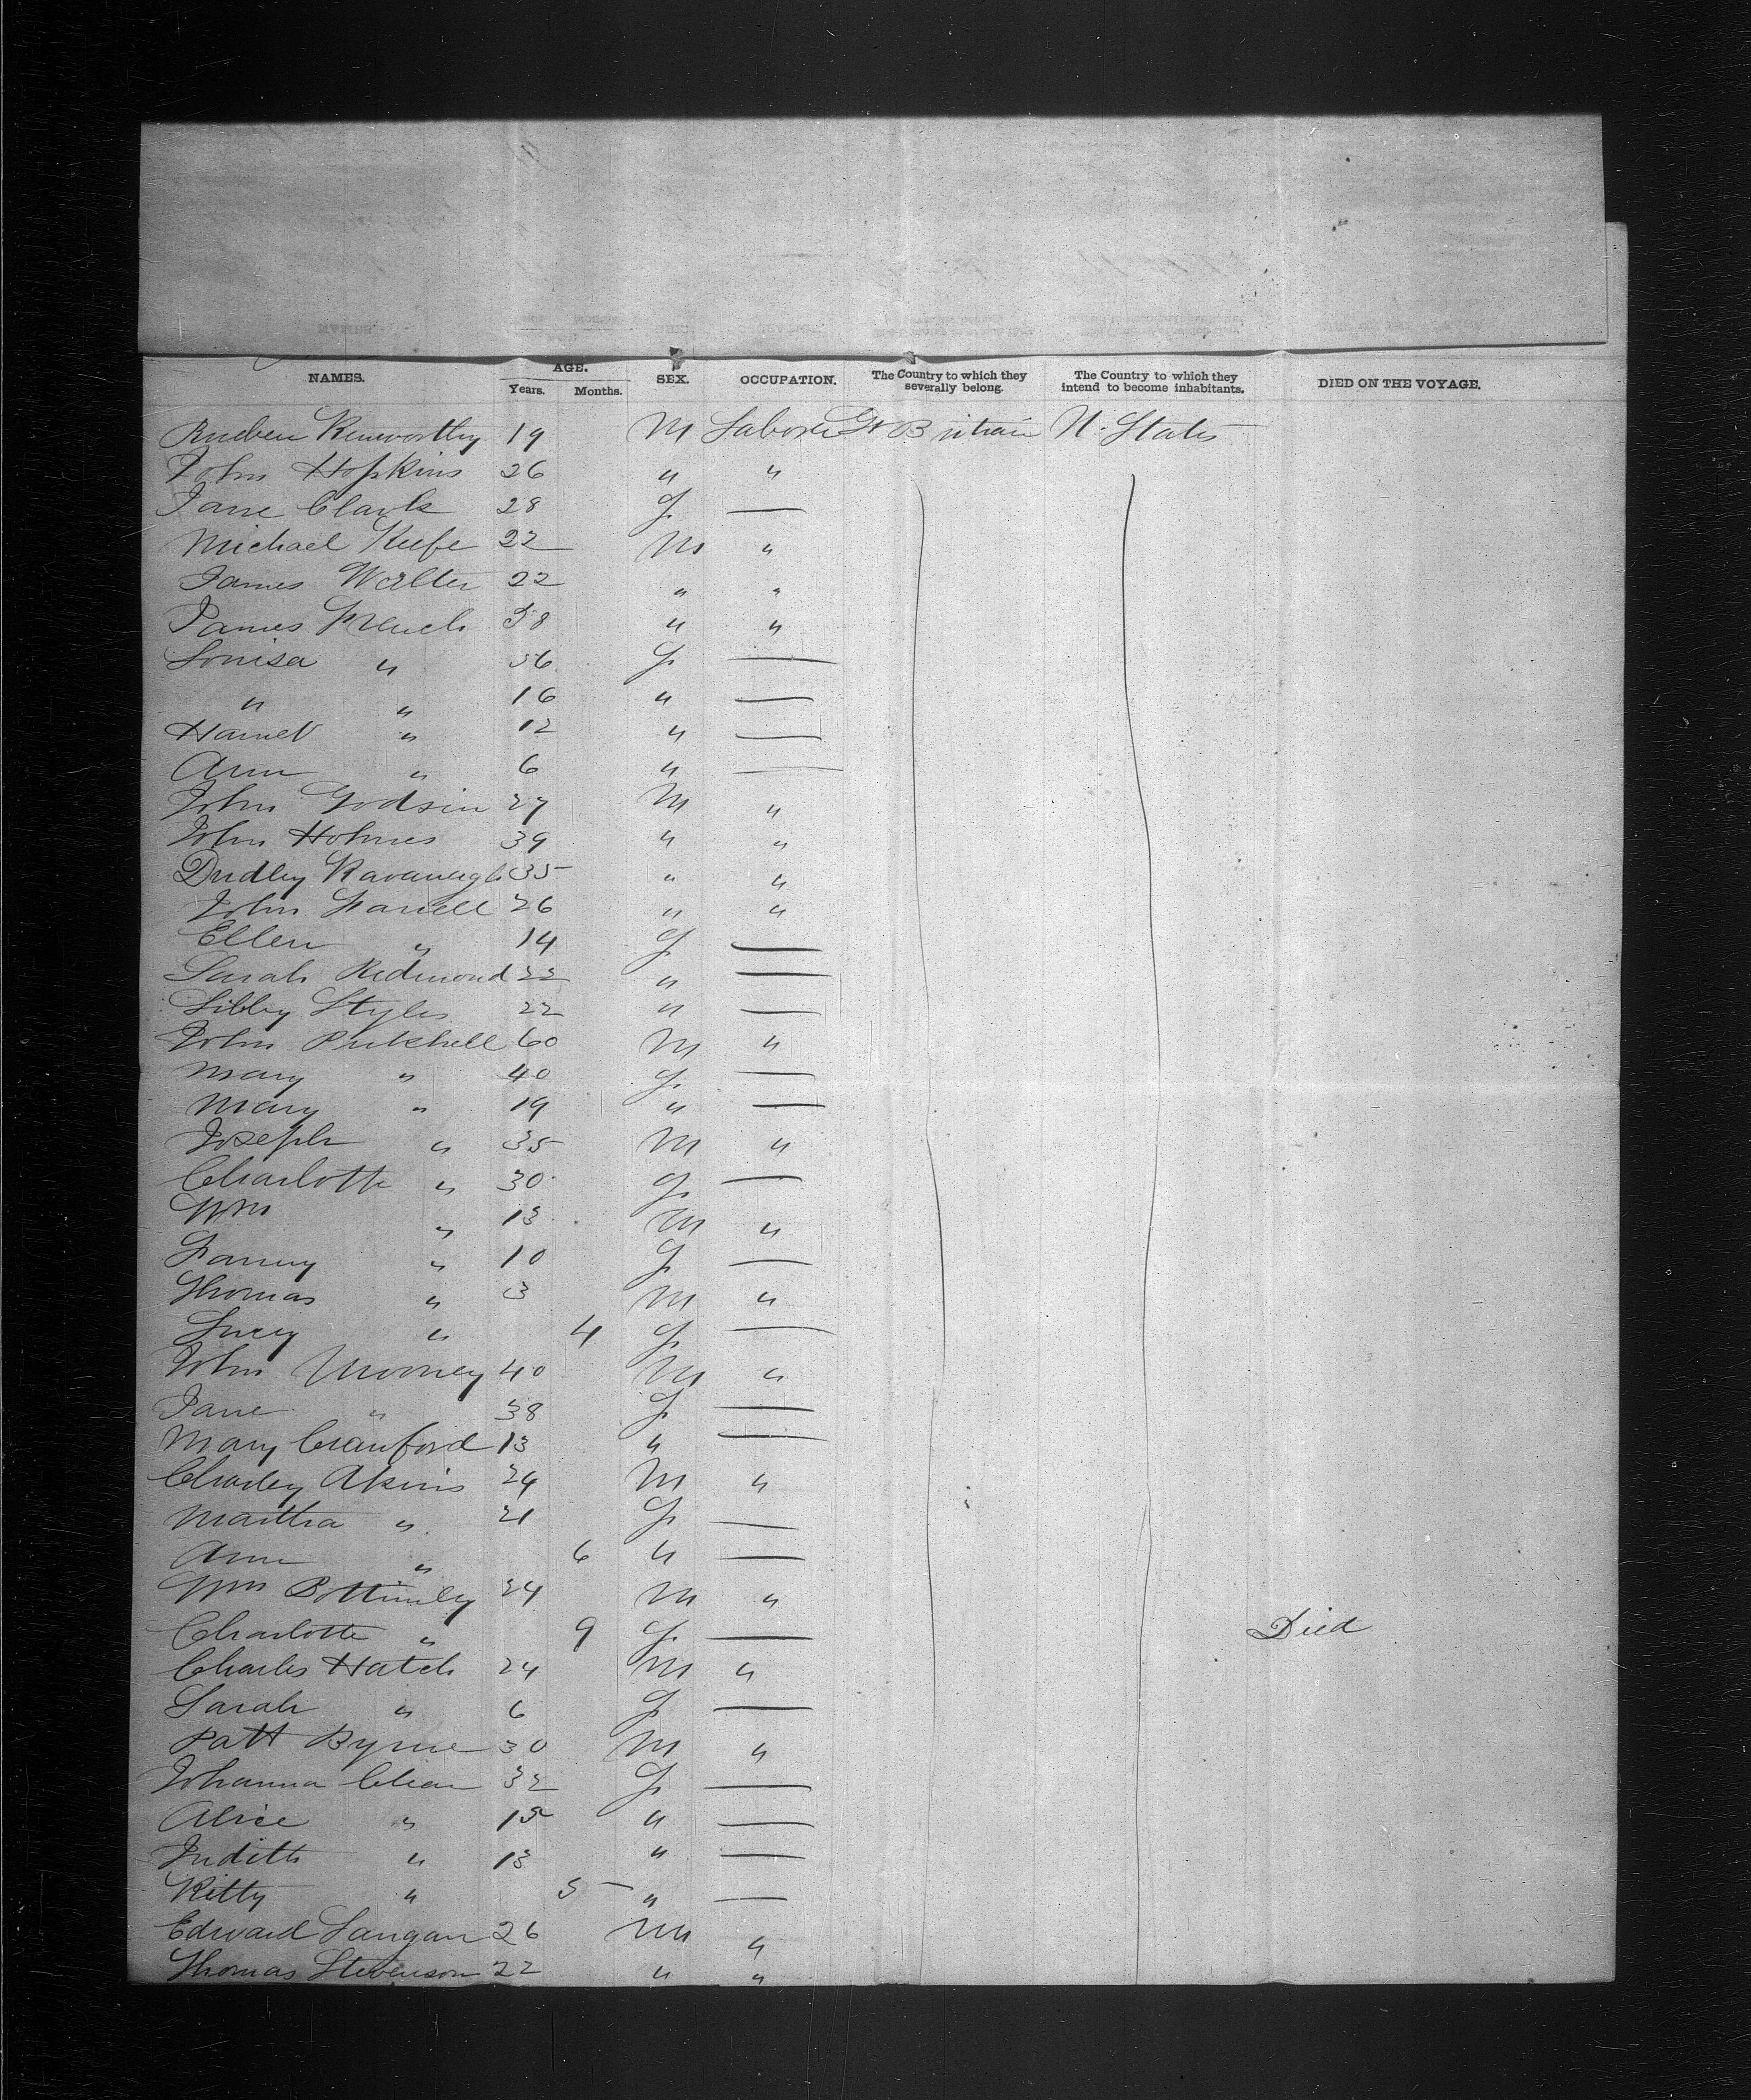 NAMES. AGE. Years. Months. SEX. OCCUPATION. The Country to which they severally belong. The Country to which they intend to become inhabitants. DIED ON THE VOYAGE.
Rueben Kenworthy 19 M Laborer Gt Britain U. States
John Hopkins 26 " "
Jane Clark 28 F —
Michael Keefe 22 M "
James Walter 22 " "
James French 38 " "
Louisa " 36 F —
" " 16 " —
Harriet " 12 " —
Ann " 6 " —
John Godsin 27 M "
John Holmes 39 " "
Dudley Kavanagh 35 " "
John Farrell 26 " "
Ellen " 14 F —
Sarah Redmond 22 " —
Libby Styles 22 " —
John 60 M "
Mary " 40 F —
Mary " 19 " —
Joseph " 35 M "
Charlotte " 30 F —
Wm " 13 M "
Fanny " 10 F —
Thomas " 3 M "
Lucy " 4 F —
John Mooney 40 M "
Jane " 38 F —
Mary Crawford 13 " —
Charley Akins 24 M "
Martha " 21 F —
Ann " 6 " —
Wm Bottimley 24 M "
Charlotte " 9 F — Died
Charles Hatch 24 M "
Sarah " 6 F —
Patt Byrne 30 M "
Johanna 32 F —
Alice " 15 " —
Judith " 13 " —
Kitty " 5 " —
Edward Langan 26 M "
Thomas Stevenson 22 " "